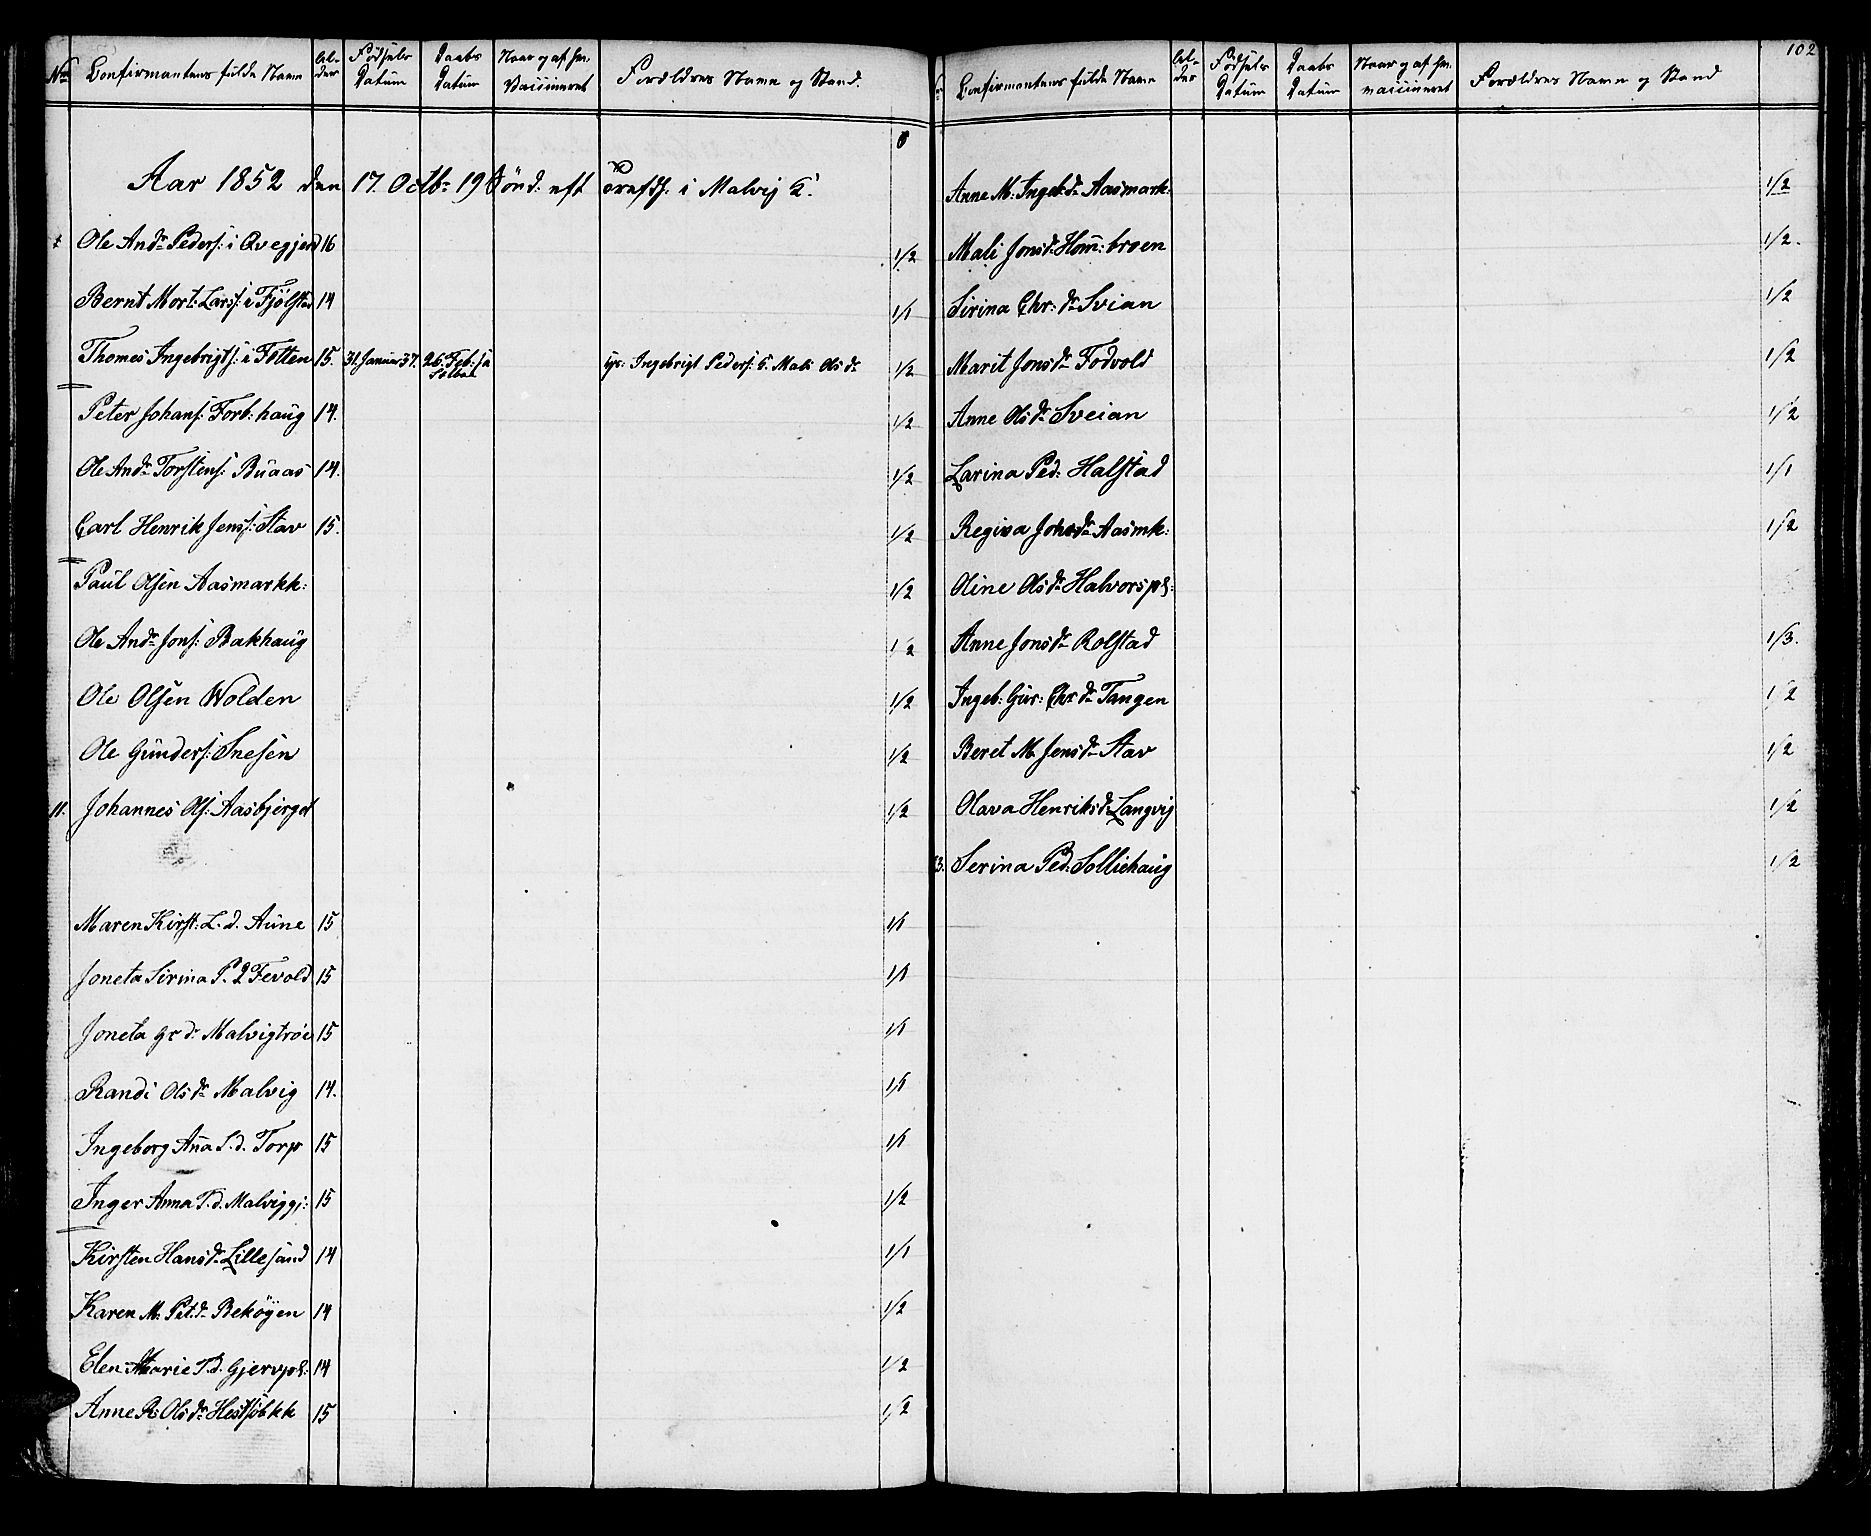 No Confirmantens fulde Navn Al-der Fødsels Datum Daabs Datum Naar og af hv. Vaccineret Forældres Navne og Stand.
Aar 1852 den 17. Octbr 19 Sönd. eft Trefds. i Malvig K.
1 Ole Andr Peders: i Qvegjerd 16 1/2
Bernt Mort: Larss: i Fjølstad 14 1/1
Thomes Ingebrigts: i Fotten 15. 31 Januar 37. 26 Feb: i Selbu Ingebrigt Peders: Mali Olsdr 1/2
Peter Johans: Forb: haug 14. 1/2
Ole Andr Torstens: Buaas 14. 1/2
Carl Henrik Jenss: Stav 15. 1/2
Paul Olsen Aasmarkk: 1/2
Ole Andr Jons: Bakhaug 1/2
Ole Olsen Wolden 1/2
Ole Gunders: Snesen 1/2
11. Johannes Ols: Aasbjerget 1/2
Maren Kirst: L. d. Aune 15 1/1
Joneta Sirina P. d Fevold 15 1/1
Joneta Gr d. Malvigtrøe 15 1/1
Randi Olsdr Malvig 14. 1/1
Ingeborg Ana S. d. Torp 15 1/1
Inger Anna P. d. Malviggj: 15 1/2
Kirsten Hansdr Lillesand 14 1/1
Karen M. Pet.dr Bekøyen 14 1/2
Elen Marie P. d. Gjervpl: 14 1/2
Anne R. Olsdr Hestsøkk 15 1/2
102
Confirmantens fulde Navn Al-der Fødsels Datum Daabs Datum Naar og af hv. vaccineret Forældres Navne og Stand
Anne M: Ingebdr Aasmark: 1/2
Mali Jonsd. Hom: broen 1/2.
Sirina Chr: dr Svian 1/2
Marit Jonsdr Fodvold 1/2
Anne Olsdr Sveian 1/2
Larina Ped: Halstad 1/1
Regina Johsdr Aasmk: 1/2
Oline Olsdr Halvorspl:
Anne Jonsdr Rolstad 1/3.
Ingeb: Gur: Chr dr Tangen 1/2
Beret M Jensdr Stav 1/2
Olava Henriksdr Langvig 1/2
13. Serina Ped: Solliehaug 1/2